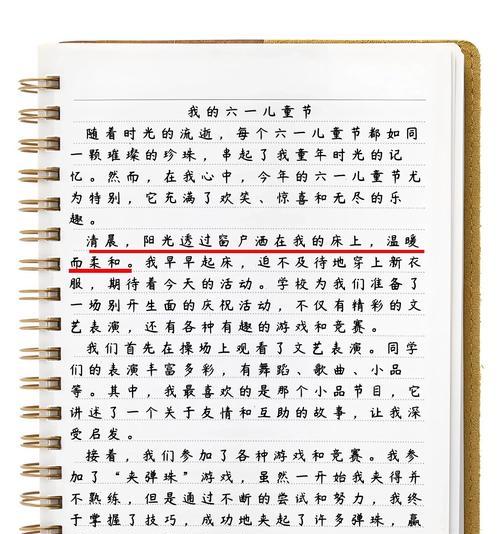 我的六一儿童节
随着时光的流逝，每个六一儿童节都如同
一颗璀璨的珍珠，串起了我童年时光的记
忆。然而，在我心中，今年的六一儿童节尤
为特别，它充满了欢笑、惊喜和无尽的乐
趣。
清晨，阳光透过窗户洒在我的床上，温暖
而柔和。我早早起床，迫不及待地穿上新衣
服，期待着今天的活动。学校为我们准备了
一场别开生面的庆祝活动，不仅有精彩的文
艺表演，还有各种有趣的游戏和竞赛。
我们首先在操场上观看了文艺表演。同学
们的表演丰富多彩，有舞蹈、歌曲、小品
等。其中，我最喜欢的是那个小品节目，它
讲述了一个关于友情和互助的故事，让我深
受启发。
接着，我们参加了各种游戏和竞赛。我参
加了“夹弹珠”游戏，虽然一开始我夹得并
不熟练，但是通过不断的尝试和努力，我终
于掌握了技巧，成功地夹起了许多弹珠，赢